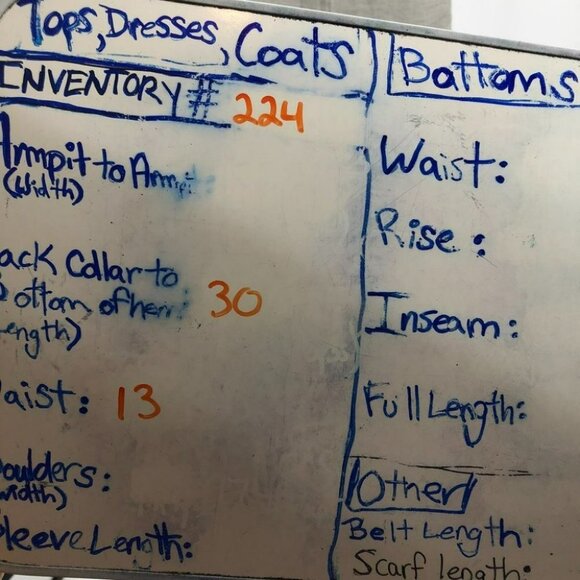 Tops, Dresses, Coats
INVENTORY # 224
Armpit to Armpit:
(Width)
ack Collar to
Bottom of hem: 30
ength)
aist: 13
oulders:
width)
leeve Length:
Bottoms
Waist:
Rise:
Inseam:
Full Length:
Other
Belt Length:
Scarf length: